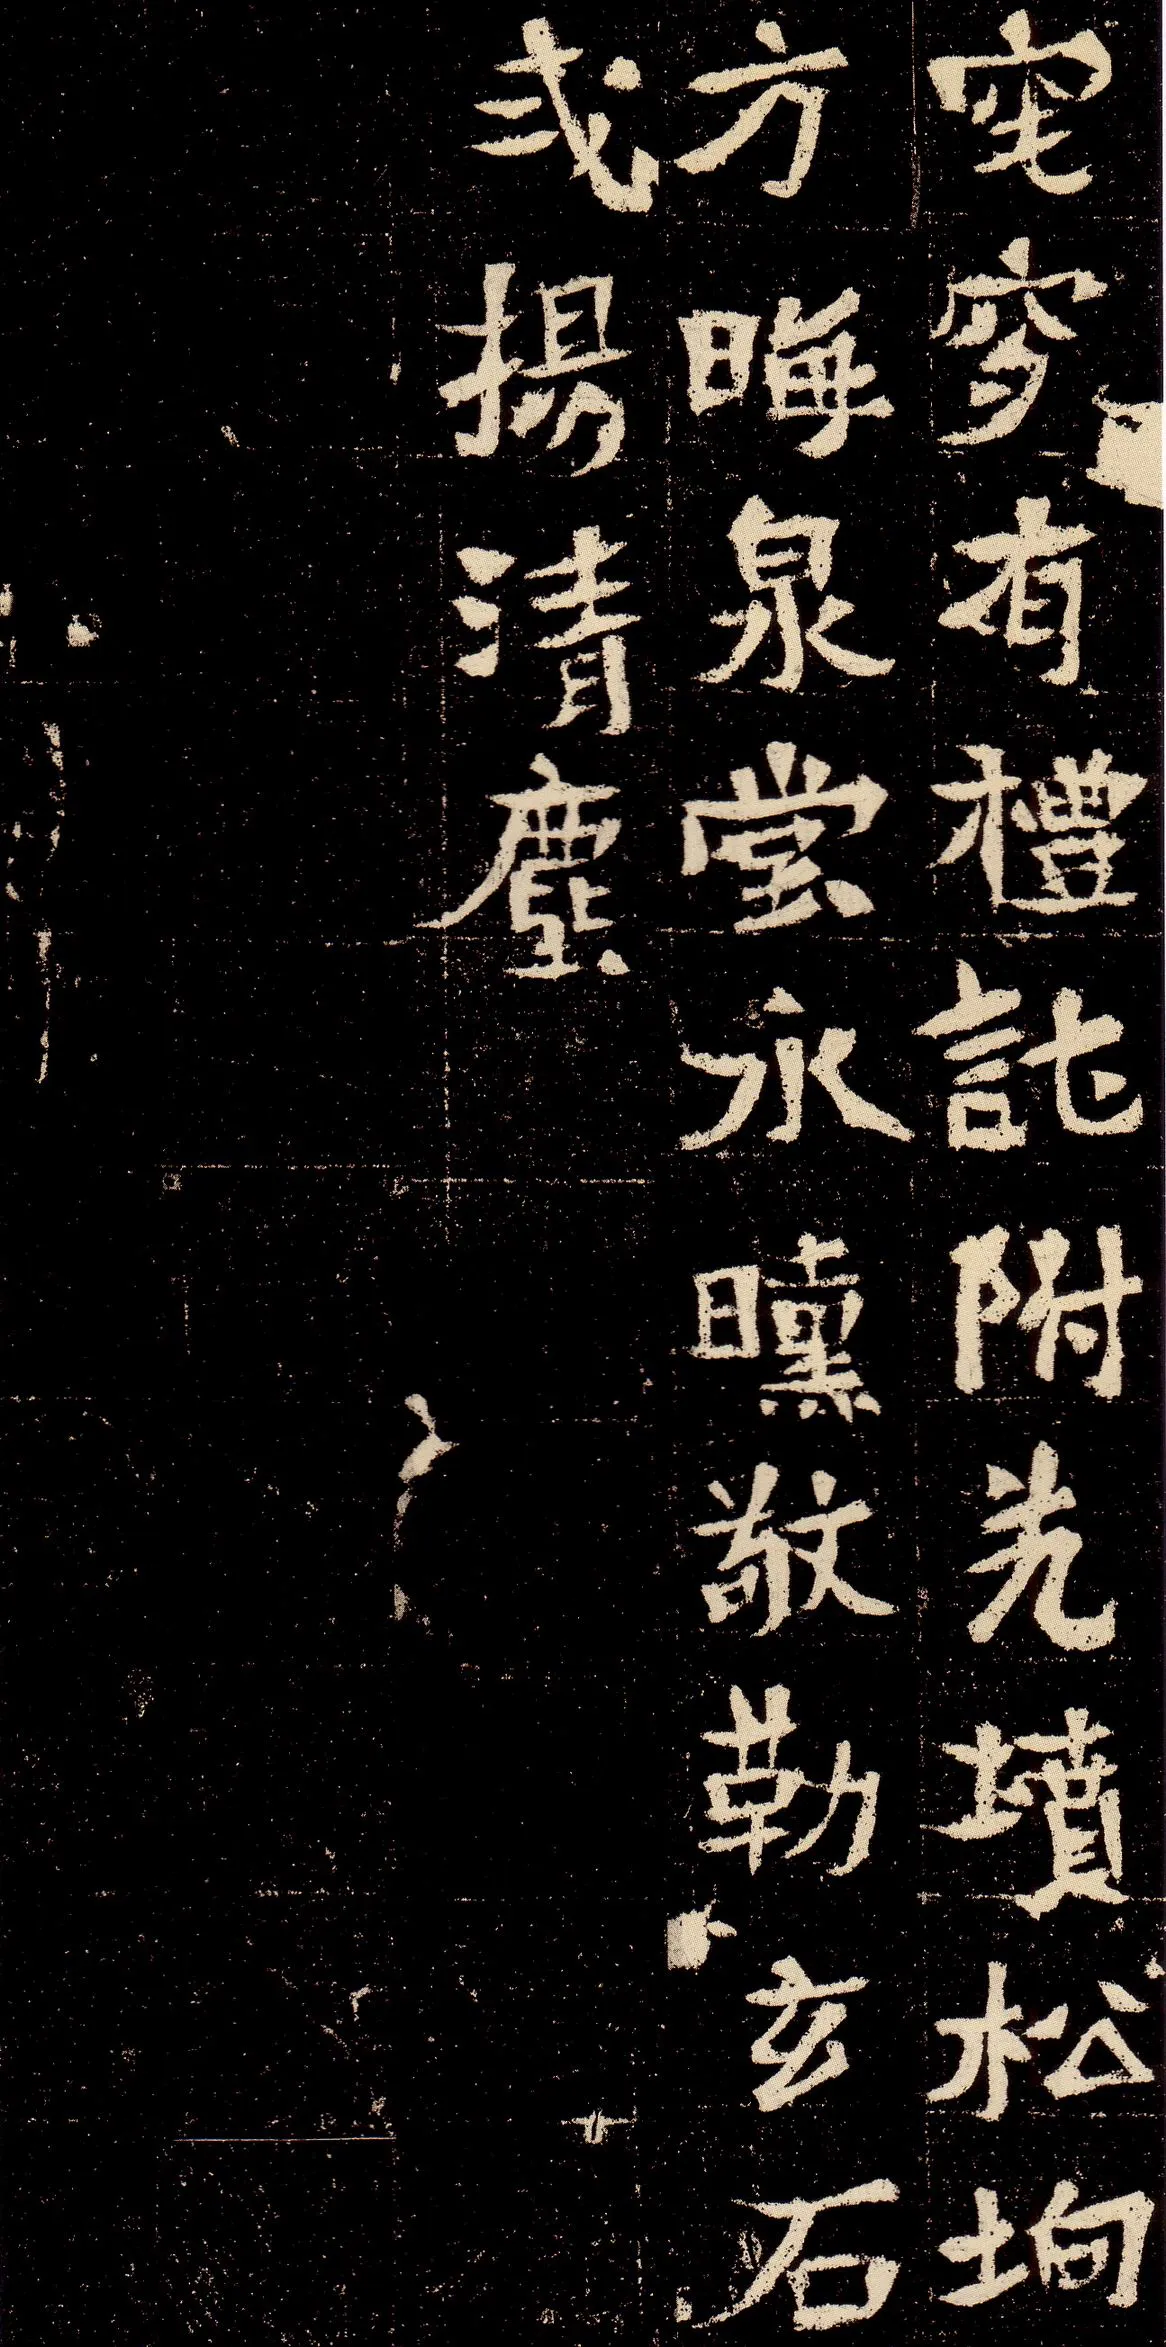 窀穸有禮託附先墳松坰
方晦泉堂永曛敬勒玄石
式揚清塵